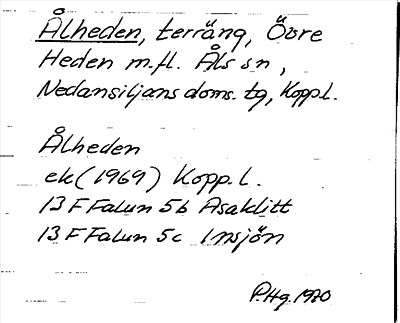 Ålheden, terräng, Övre
Heden m.fl. Åls sn,
Nedansiljans doms. tg, Kopp.l.
Ålheden
ek (1969) Kopp.l.
13 F Falun 5b Asaklitt
13 F Falun 5c Insjön
P.Hg. 1970